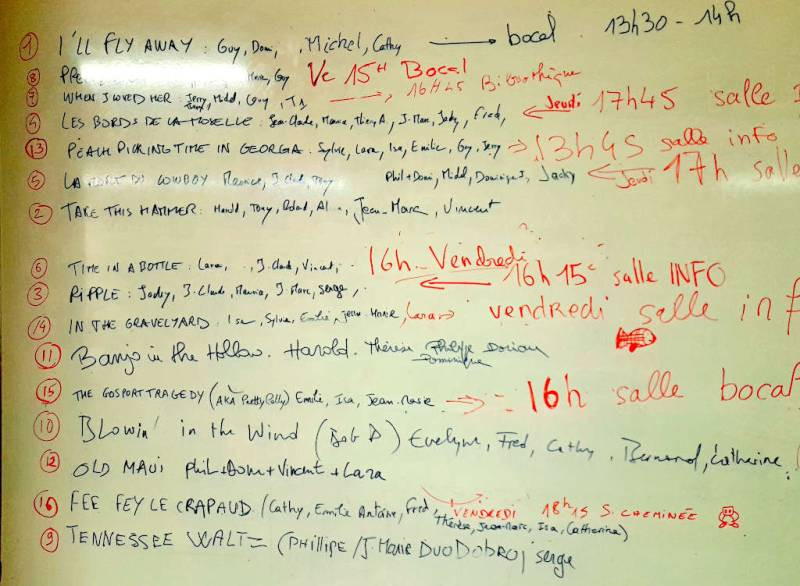 1 I'LL FLY AWAY : Guy, Domi, , Michel, Cathy → bocal . 13H30 - 14h
8 Guy Ve 15H Bocal
7 WHEN I LOVED HER : Jerry, Guy, → 16H45 Bibliothèque
4 LES BORDS DE LA MOSELLE : Jean-Claude, Thierry, J. Marc, Jacky, Fred, ← Jeudi 17h45 salle
13 PEACH PICKING TIME IN GEORGIA : Sylvie, Lara, Isa, Emilie, Guy, Jerry → 13h45 salle info
5 LA MORT DU COWBOY J. Claude, Tony Phil + Domi, Dominique J, Jacky ← Jeudi 17h salle
2 TAKE THIS HAMMER : Harold, Tony, Roland, Al , Jean-Marc, Vincent
16h - Vendredi
6 TIME IN A BOTTLE : Lara, , J. Claude, Vincent, ← 16h15 salle INFO
3 RIPPLE : Jacky, J. Claude, J. Marc, Serge,
14 IN THE GRAVEYARD . Isa, Sylvie, Emilie, Jean-Marie, Lara → vendredi salle inf
11 Banjo in the Hollow . Harold . Thérèse Philippe Dorian
Dominique
15 THE GOSPORT TRAGEDY (AKA Pretty Polly) Emilie, Isa, Jean-Marie → 16h salle bocal
10 BLOWIN' in the Wind (Bob D) Evelyne, Fred, Cathy, Bernard, Catherine
12 OLD MAUI phil + Dom + Vincent + Lara
16 FEE FEY LE CRAPAUD / Cathy, Emilie Antoine, Fred, VENDREDI 18h15 S. CHEMINÉE
Thérèse, Jean-Marc, Isa, Catherine)
9 TENNESSEE WALTZ (PHILLIPE / J. Marie DUO DOBRO) Serge